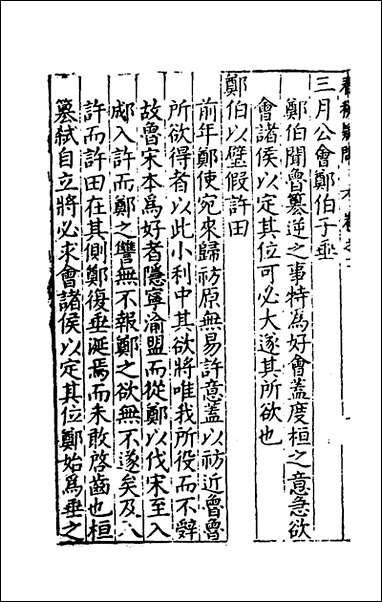 三月公會鄭伯于垂
鄭伯聞魯簒逆之事特為好會蓋度桓之意急欲
會諸侯以定其位可必大遂其所欲也
鄭伯以璧假許田
前年鄭使宛來歸祊原無易許意蓋以祊近魯魯
所欲得者以此小利中其欲將唯我所役而不辤
故魯宋本爲好者隱寧渝盟而從鄭以伐宋至入
郕入許而鄭之讐無不報鄭之欲無不遂矣及入
許而許田在其側鄭復垂涎焉而未敢啓齒也桓
簒弑自立將必求會諸侯以定其位鄭始爲垂之